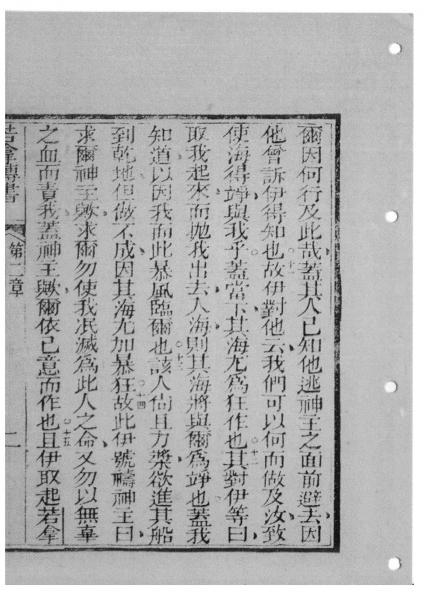 爾因何行及此哉蓋其人已知他逃神王之面前避去因
他曾訴伊得知也〇十一故伊對他云我們可以何而做及汝致
使海得竫與我乎蓋當下其海尤為狂作也〇十二其對伊等曰
取我起來而拋我出去入海則其海將與爾為竫也蓋我
知道以因我而此暴風臨爾也〇十三該人尚且力槳欲進其船
到乾地但做不成因其海尤加暴狂〇十四故此伊號禱神王曰
求爾神王歟求爾勿使我泯滅為此人之命又勿以無辜
之血而責我蓋神王歟爾依己意而作也〇十五且伊取起若拿
若拿傳書 第一章 一